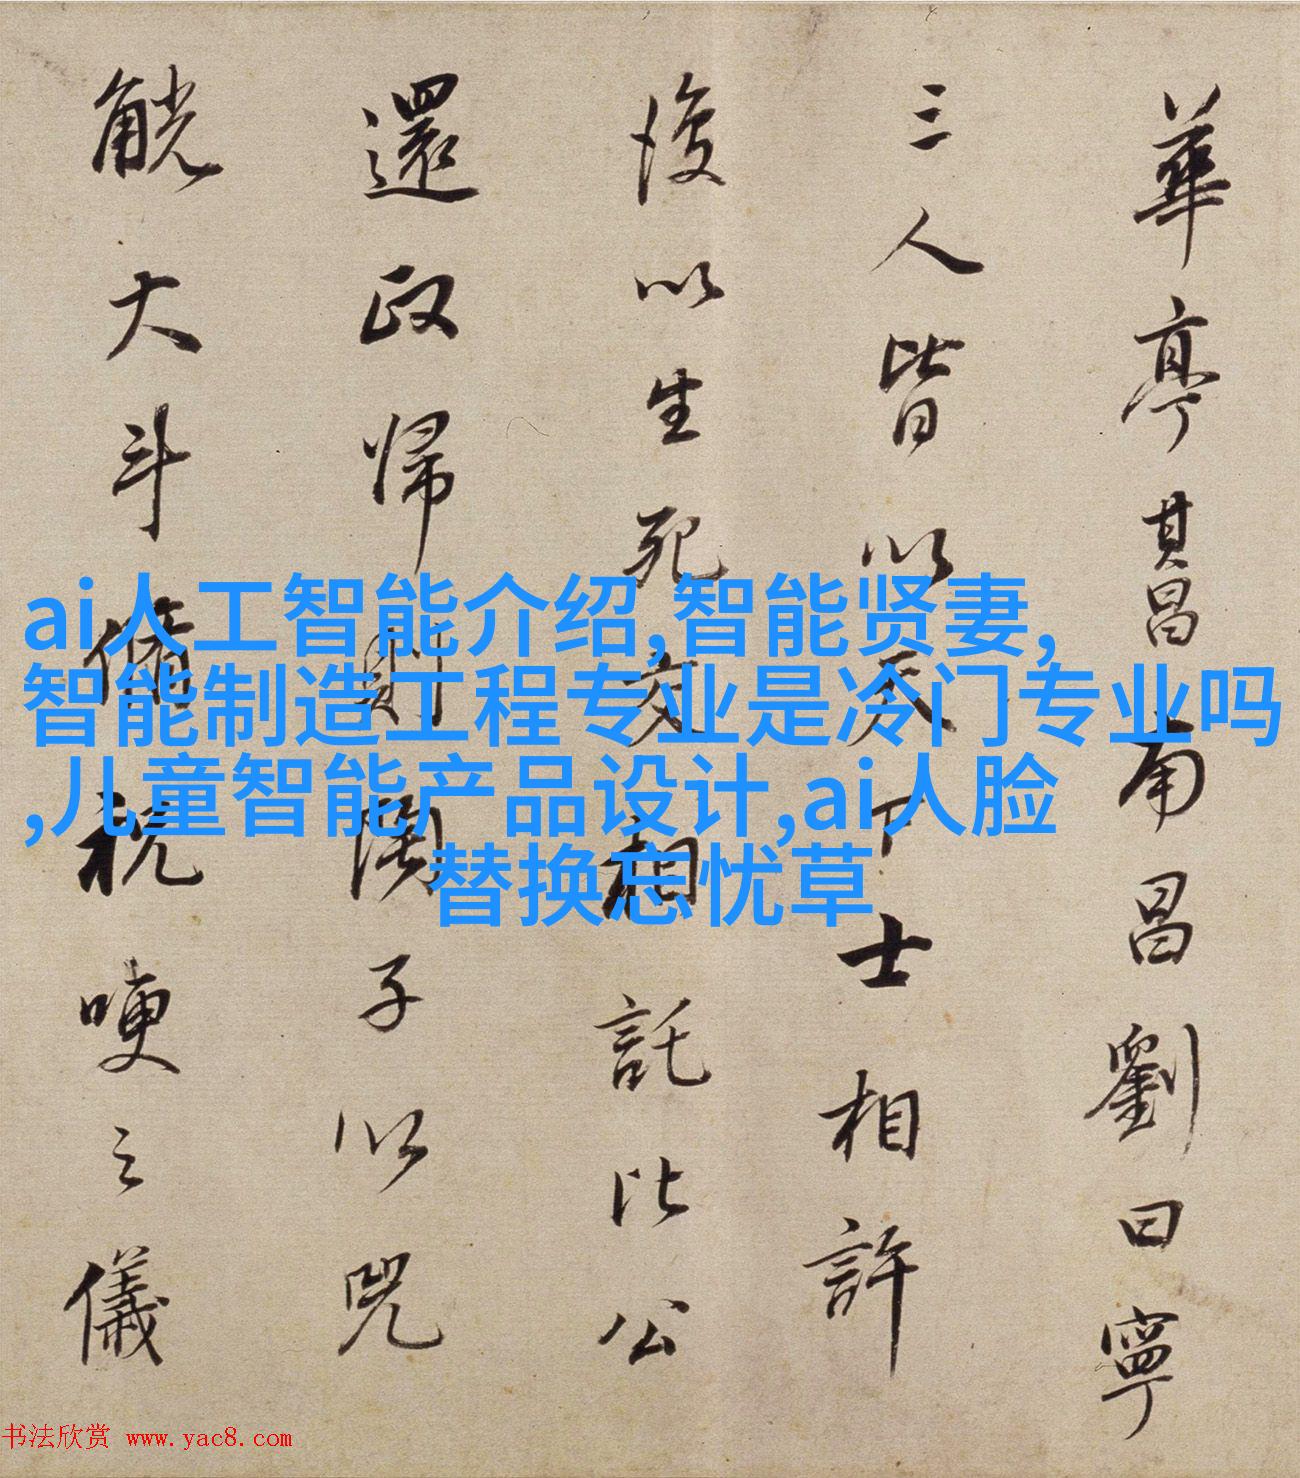 華亭其昌南昌劉曰寧
三人皆以天下士相許
後以生死交相託比公
還政歸則闊子以兕
觥大斗備祝哽之儀
ai人工智能介绍,智能贤妻,
智能制造工程专业是冷门专业吗
,儿童智能产品设计,ai人脸
替换忘忧草
书法欣赏 www.yac8.com